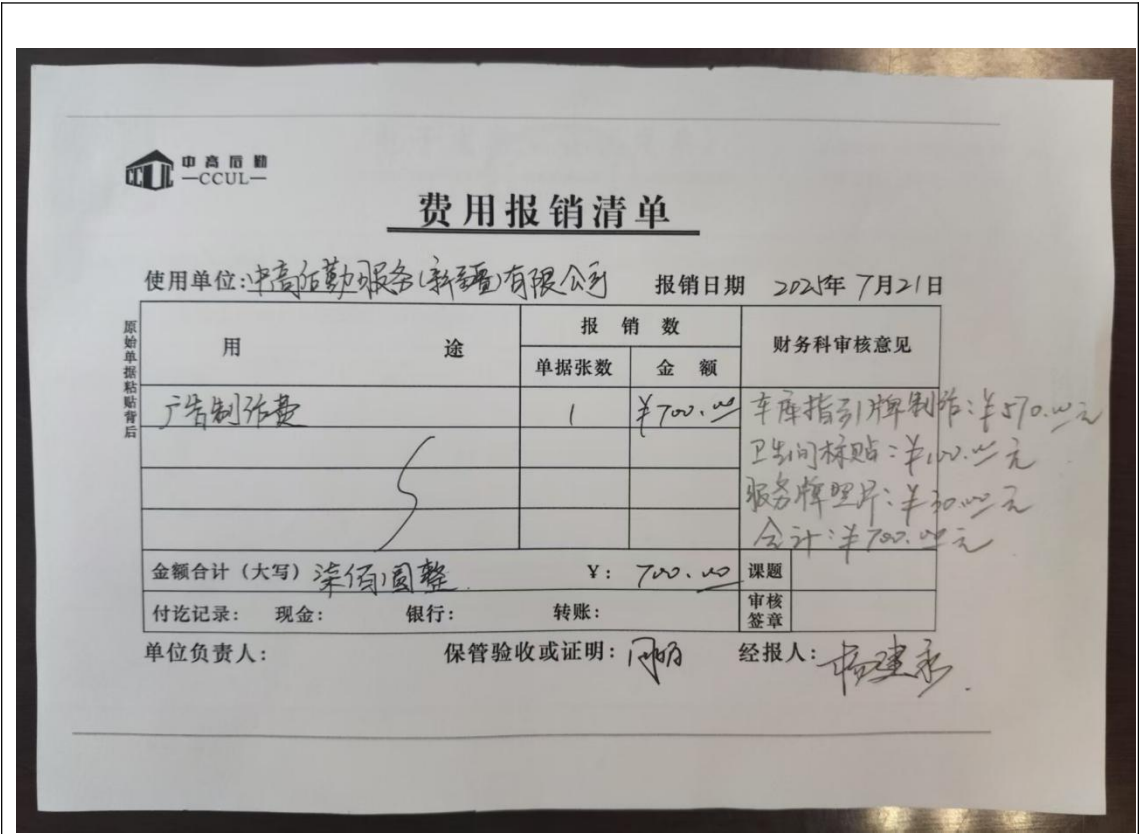 中高后勤
CCUL
—CCUL—
费用报销清单
使用单位:中高后勤服务(新疆)有限公司 报销日期 2025年7月21日
原始单据粘贴背后
用 途 报 销 数 财务科审核意见
单据张数 金 额
广告制作费 1 ¥700.00 车库指引牌制作:¥570.00元
卫生间标贴:¥100.00元
服务牌照片:¥30.00元
合计:¥700.00元
金额合计(大写) 柒佰圆整. ¥: 700.00 课题
付讫记录: 现金: 银行: 转账: 审核签章
单位负责人: 保管验收或证明: 经报人: 杨建永